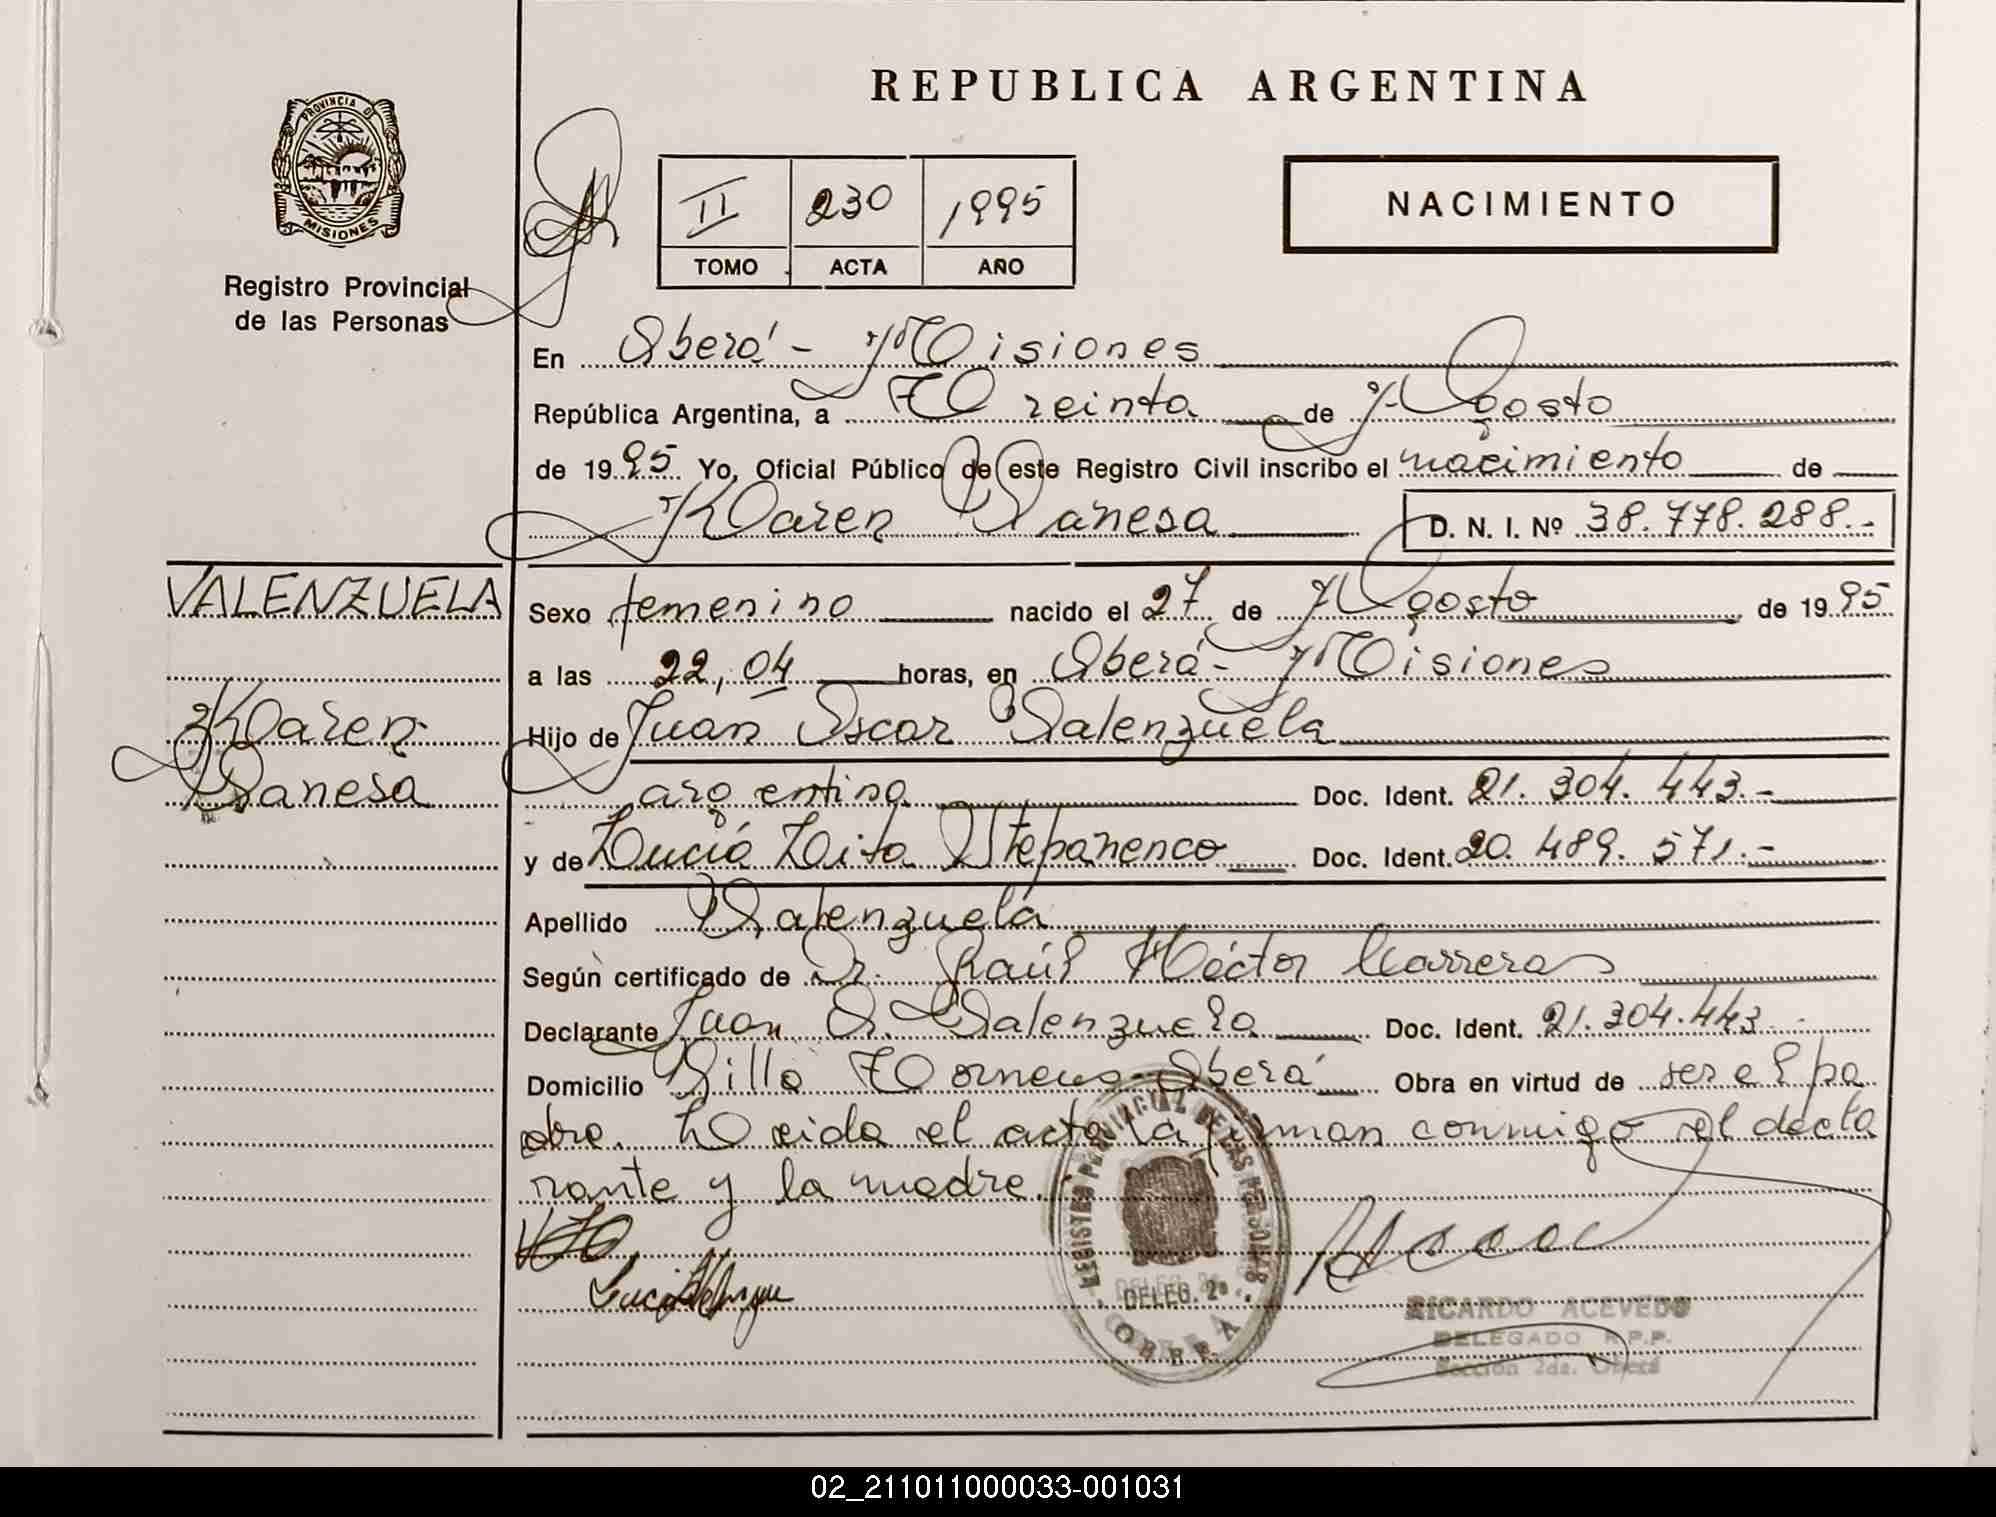 REPUBLICA ARGENTINA
PROVINCIA DE
MISIONES
Registro Provincial
de las Personas
II 230 1995
TOMO ACTA AÑO
NACIMIENTO
En Oberá - Misiones
República Argentina, a Treinta de Agosto
de 1995 Yo, Oficial Público de este Registro Civil inscribo el nacimiento de
Karen Vanesa D. N. I. Nº 38.778.288.-
VALENZUELA
Karen
Vanesa
Sexo femenino nacido el 27 de Agosto de 1995
a las 22,04 horas, en Oberá - Misiones
Hijo de Juan Oscar Valenzuela
argentina Doc. Ident. 21.304.443.-
y de Lucia Lita Stepanenco Doc. Ident. 20.489.571.-
Apellido Valenzuela
Según certificado de Dr. Raúl Héctor Carreras
Declarante Juan O. Valenzuela Doc. Ident. 21.304.443
Domicilio Villa Torneus Oberá Obra en virtud de ser el pa
dre. Leida el acta la firman conmigo el decla
rante y la madre.
REGISTRO PROVINCIAL DE LAS PERSONAS
DELEG. 2ª
OBERA
RICARDO ACEVEDO
DELEGADO R.P.P.
Sección 2da. Oberá
02_211011000033-001031